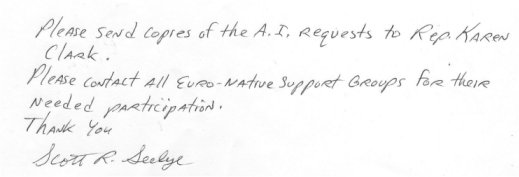 Please send copies of the A.I. requests to Rep. Karen
Clark.
Please contact all Euro-Native Support Groups for their
needed participation.
Thank You
Scott R. Seelye